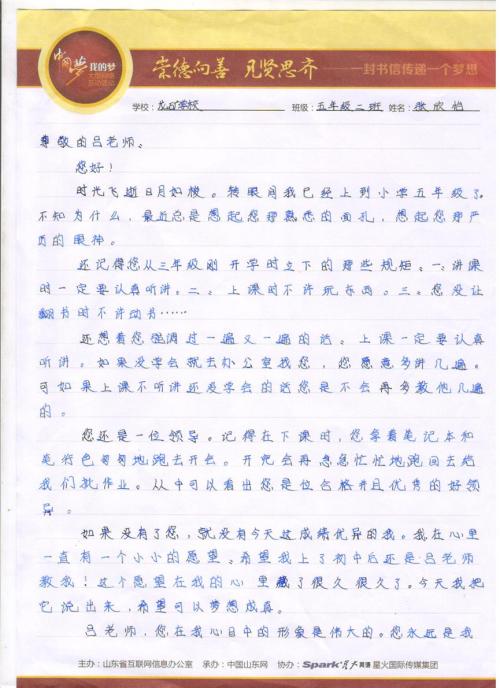 中国梦 我的梦
大型网络
互动活动
崇德向善 见贤思齐
一封书信传递一个梦想
学校：龙口学校 班级：五年级二班 姓名：张欣怡
尊敬的吕老师。
您好！
时光飞逝日月如梭。转眼间我已经上到小学五年级了。
不知为什么，最近总是想起您那熟悉的面孔，想起您那严
厉的眼神。
还记得您从三年级刚开学时立下的那些规矩。一、讲课
时一定要认真听讲。二、上课时不许玩东西。三、您没让
翻书时不许动书……
还想着您强调过一遍又一遍的话。上课一定要认真
听讲。如果没学会就去办公室找您，您愿意多讲几遍。
可如果上课不听讲还没学会的话您是不会再多教他几遍
的。
您还是一位领导。记得在下课时，您拿着笔记本和
笔行色匆匆地跑去开会。开完会再急急忙忙地跑回去给
我们批作业。从中可以看出您是位合格并且优秀的好领
导。
如果没有了您，就没有今天这成绩优异的我。我在心里
一直有一个小小的愿望。希望我上了初中后还是吕老师
教我！这个愿望在我的心里藏了很久很久了。今天我把
它说出来，希望可以梦想成真。
吕老师，您在我心目中的形象是伟大的。您永远是我
主办：山东省互联网信息办公室 承办：中国山东网 协办：Spark星火英语 星火国际传媒集团